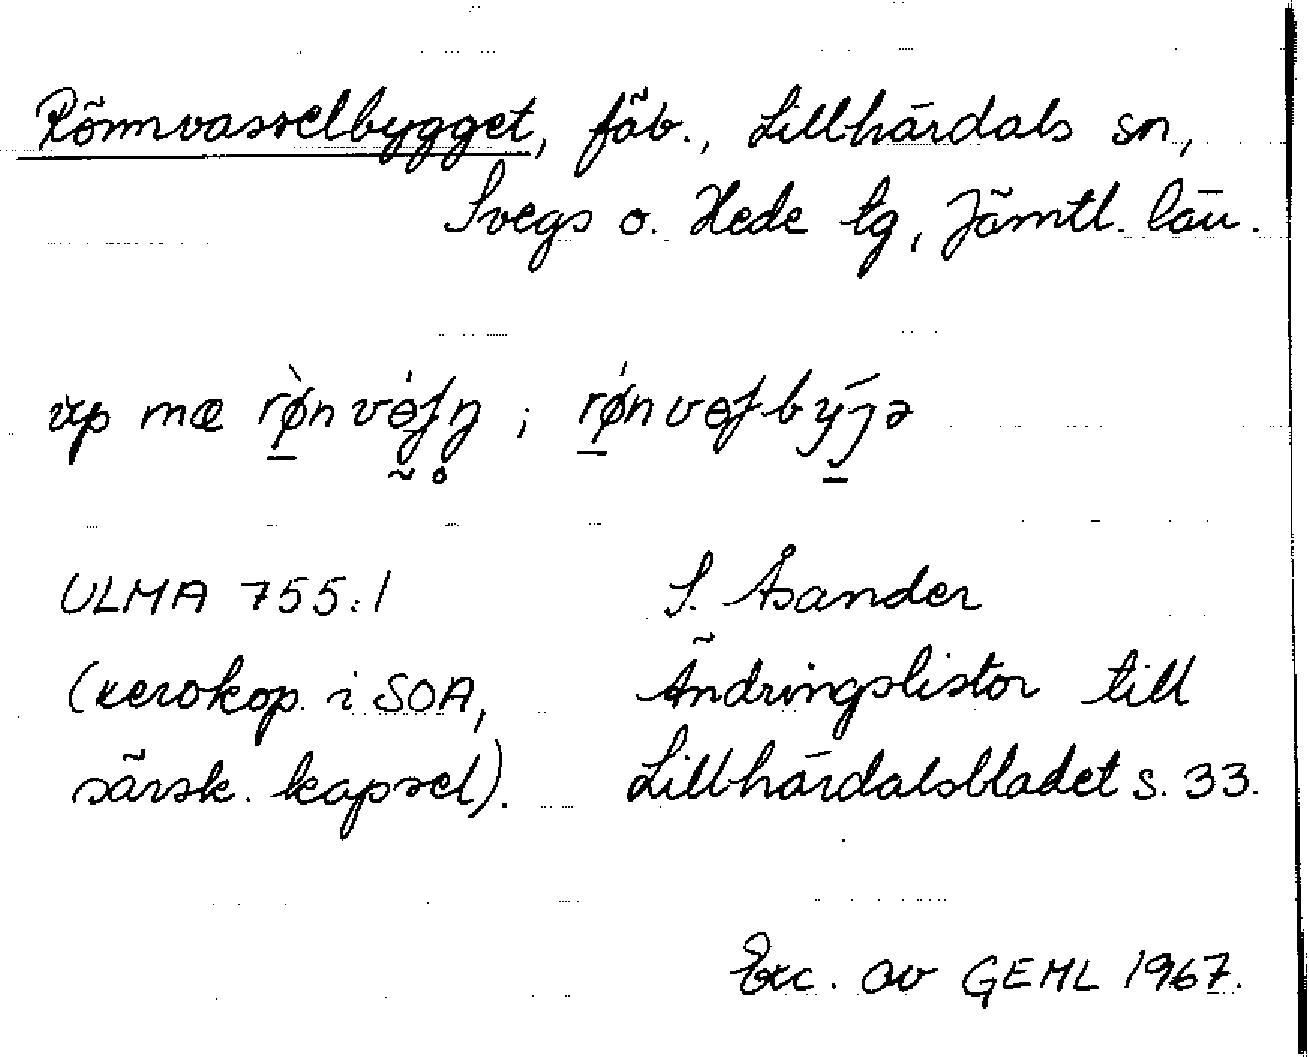 Römvasselbygget, fäb., Lillhärdals sn,
Svegs o. Hede tg, Jämtl. län.
up mæ rø̀nvɵ́ʃn̥ ; rǿnvɵʃbýɟə
ULMA 755:1 S. Åsander
(xerokop. i SOA, Ändringslistor till
särsk. kapsel). Lillhärdalsbladet s. 33.
Exc. av GEHL 1967.